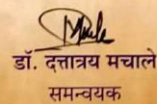 डॉ. दत्तात्रय मचाले
समन्वयक